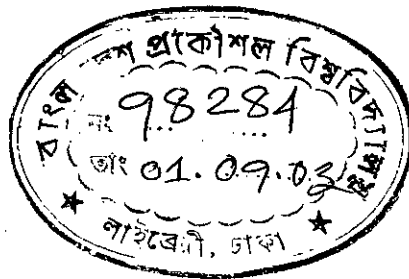 বাংলাদেশ প্রকৌশল বিশ্ববিদ্যালয়
নং 98284
তাং 01.09.03
★ লাইব্রেরী, ঢাকা ★